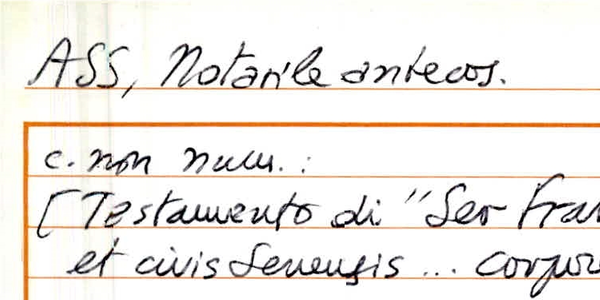 ASS, Notarile antecos.
c. non num. :
[Testamento di "Ser Fran
et civis Senensis ... corpor